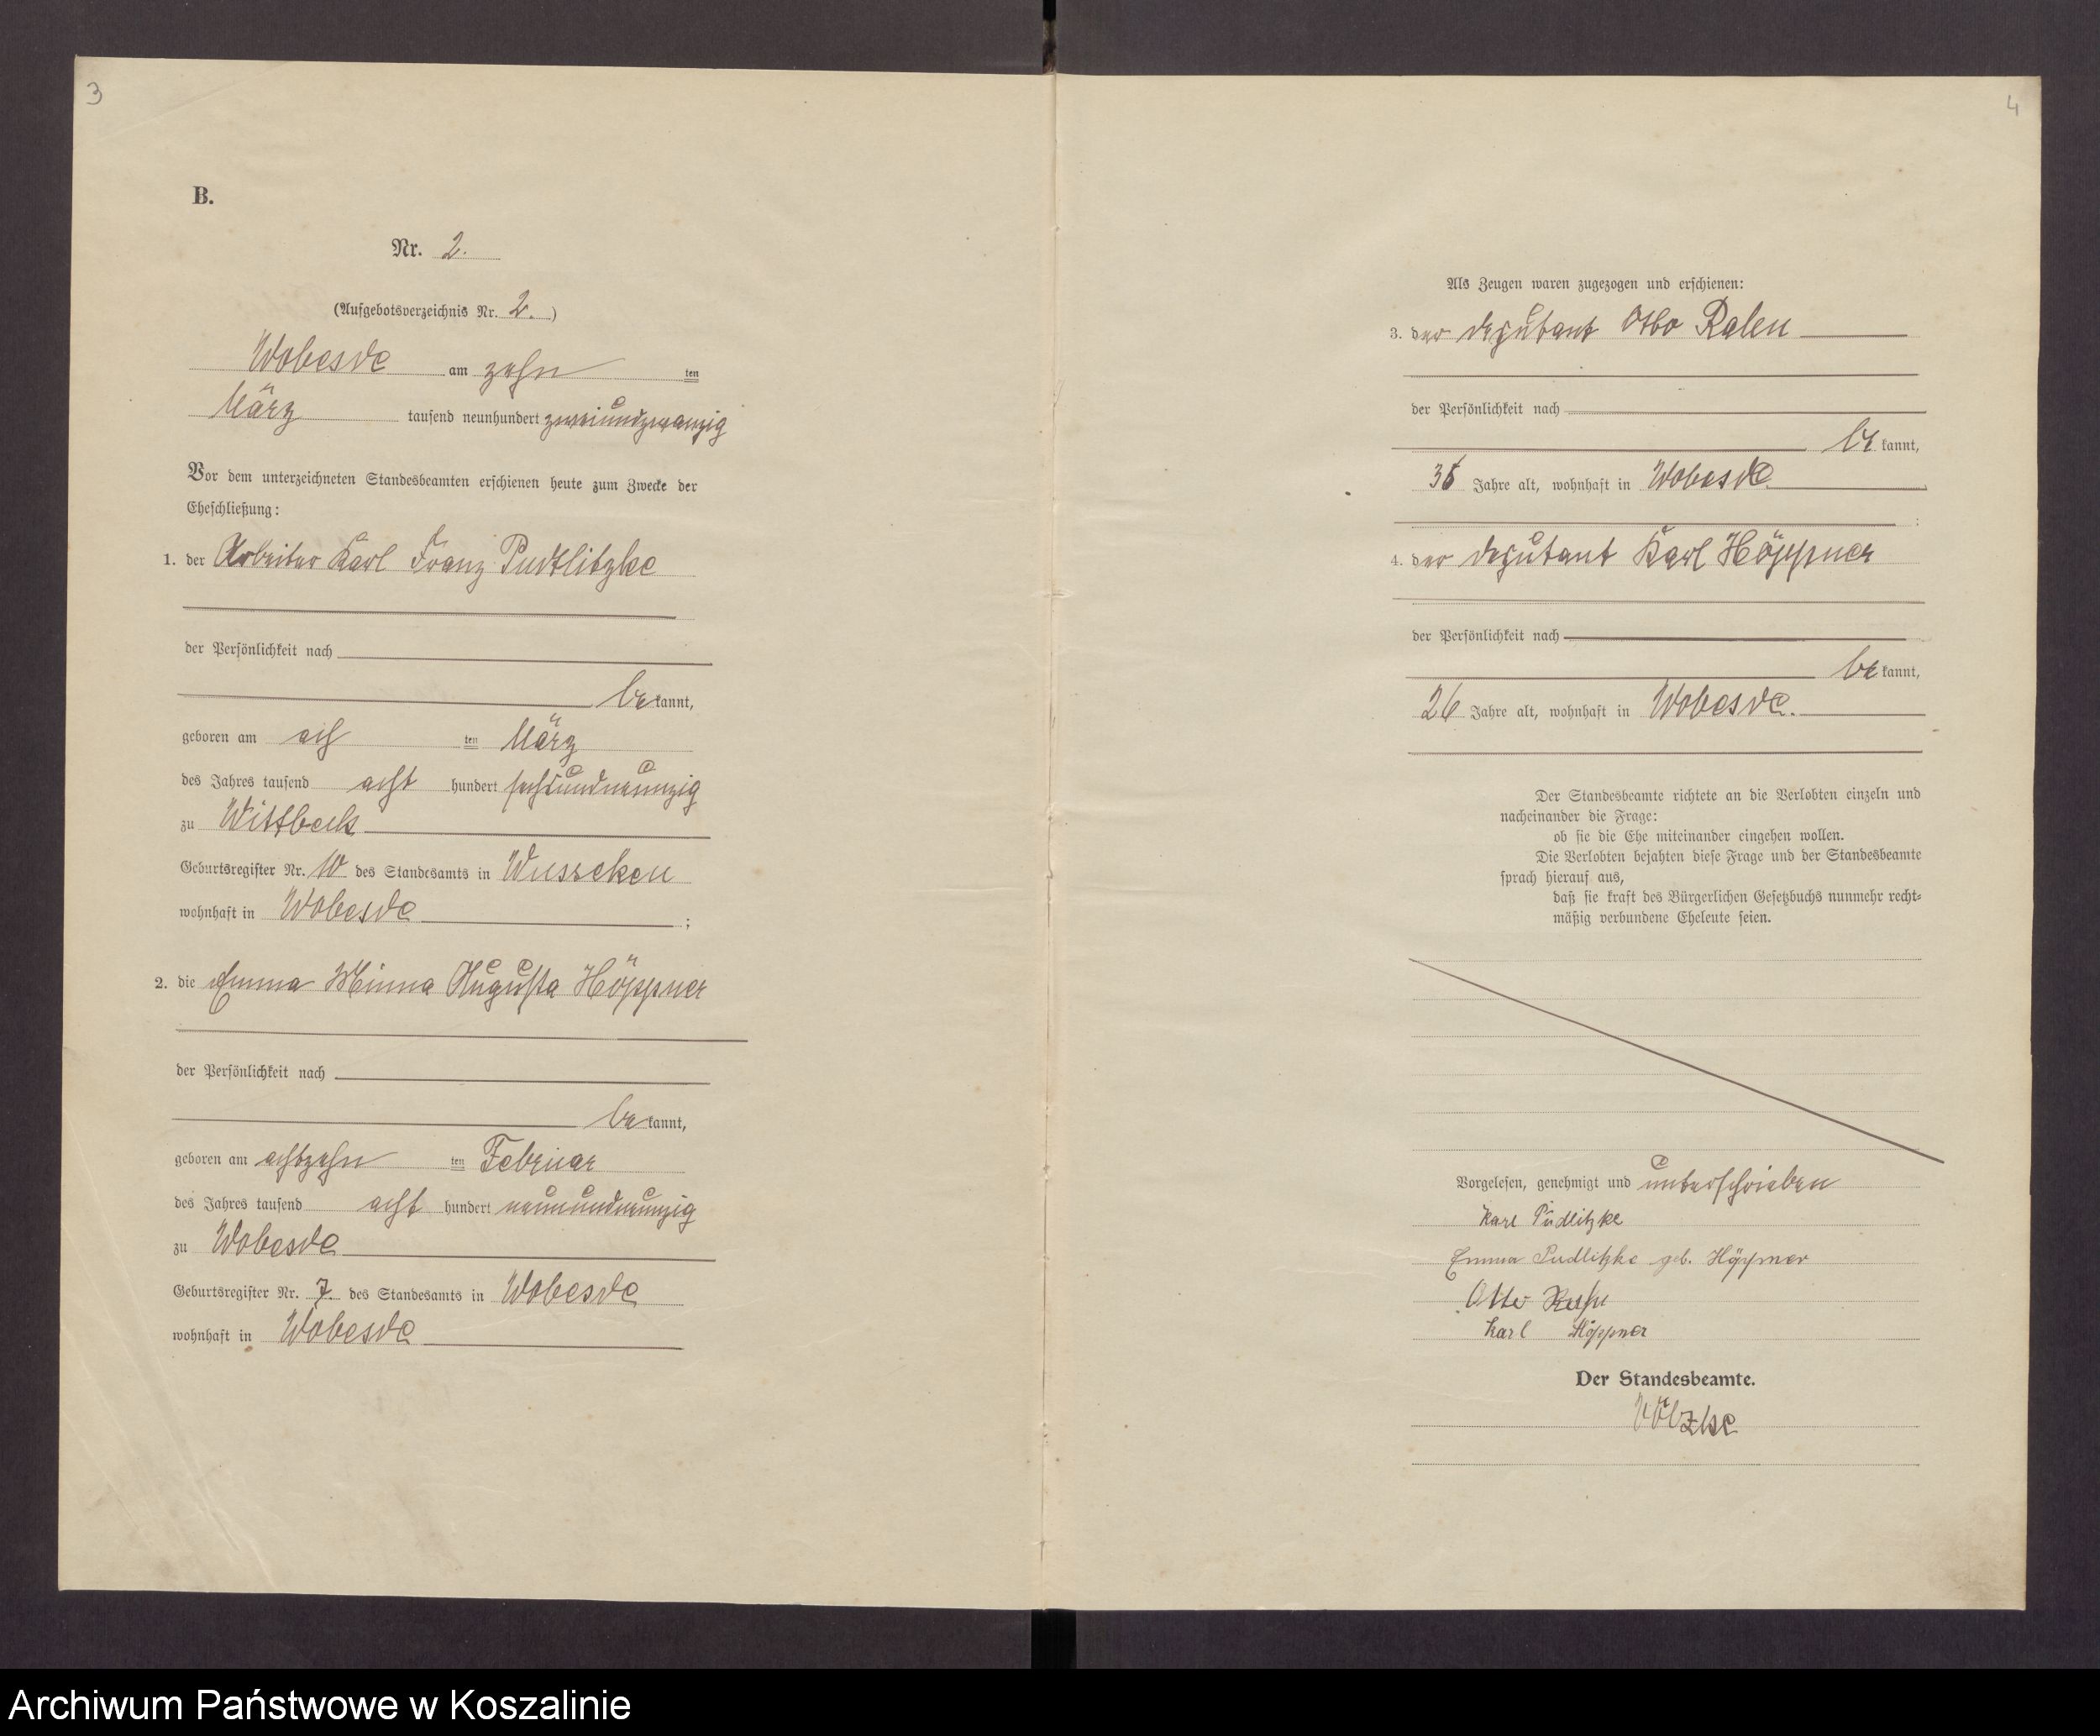 3
B.
Nr. 2.
(Aufgebotsverzeichnis Nr. 2.)
Wobesde am zehn ten
März tausend neunhundert zweiundzwanzig
Vor dem unterzeichneten Standesbeamten erschienen heute zum Zwecke der
Eheschließung:
1. der Arbeiter Karl Franz Pudlitzke
der Persönlichkeit nach
be kannt,
geboren am ten März
des Jahres tausend acht hundert sechsundneunzig
zu Wittbeck
Geburtsregister Nr. 10 des Standesamts in Wusseken
wohnhaft in Wobesde ;
2. die Emma Minna Augusta Höppner
der Persönlichkeit nach
be kannt,
geboren am achtzehn ten Februar
des Jahres tausend acht hundert neunundneunzig
zu Wobesde
Geburtsregister Nr. 7. des Standesamts in Wobesde
wohnhaft in Wobesde
4
Als Zeugen waren zugezogen und erschienen:
3. der Deputant Otto
der Persönlichkeit nach
be kannt,
Jahre alt, wohnhaft in Wobesde
;
4. der Deputant Karl Höppner
der Persönlichkeit nach
be kannt,
26 Jahre alt, wohnhaft in Wobesde.
Der Standesbeamte richtete an die Verlobten einzeln und
nacheinander die Frage:
ob sie die Ehe miteinander eingehen wollen.
Die Verlobten bejahten diese Frage und der Standesbeamte
sprach hierauf aus,
daß sie kraft des Bürgerlichen Gesetzbuchs nunmehr recht-
mäßig verbundene Eheleute seien.
Vorgelesen, genehmigt und unterschrieben
Karl Pudlitzke
Emma Pudlitzke geb. Höppner
Otto
Karl Höppner
Der Standesbeamte.
Völzke
Archiwum Państwowe w Koszalinie